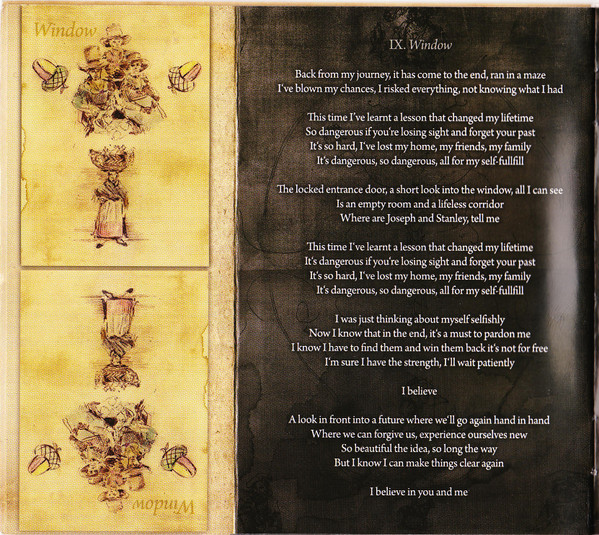 Window
IX. Window
Back from my journey, it has come to the end, ran in a maze
I've blown my chances, I risked everything, not knowing what I had
This time I've learnt a lesson that changed my lifetime
So dangerous if you're losing sight and forget your past
It's so hard, I've lost my home, my friends, my family
It's dangerous, so dangerous, all for my self-fullfill
The locked entrance door, a short look into the window, all I can see
Is an empty room and a lifeless corridor
Where are Joseph and Stanley, tell me
This time I've learnt a lesson that changed my lifetime
It's dangerous if you're losing sight and forget your past
It's so hard, I've lost my home, my friends, my family
It's dangerous, so dangerous, all for my self-fullfill
I was just thinking about myself selfishly
Now I know that in the end, it's a must to pardon me
I know I have to find them and win them back it's not for free
I'm sure I have the strength, I'll wait patiently
I believe
A look in front into a future where we'll go again hand in hand
Where we can forgive us, experience ourselves new
So beautiful the idea, so long the way
But I know I can make things clear again
I believe in you and me
Window